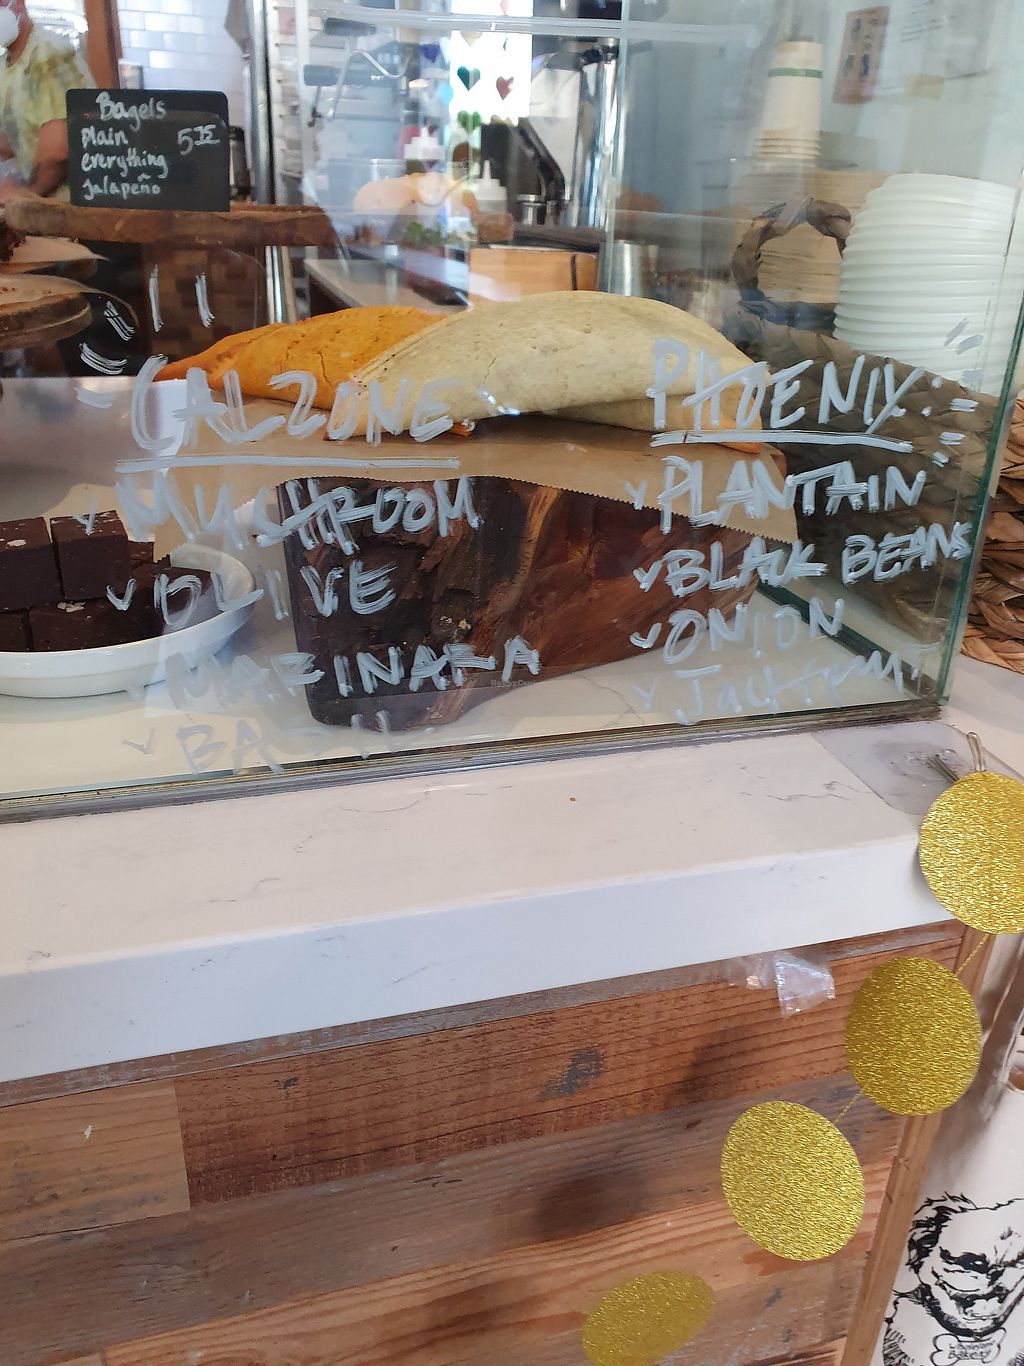 Bagels
Plain 5.75
everything
jalapeño
CALZONE
MUSHROOM
OLIVE
MARINARA
BASIL
PHOENIX
PLANTAIN
BLACK BEANS
ONION
Jackfruit
HappyCow
Bakery